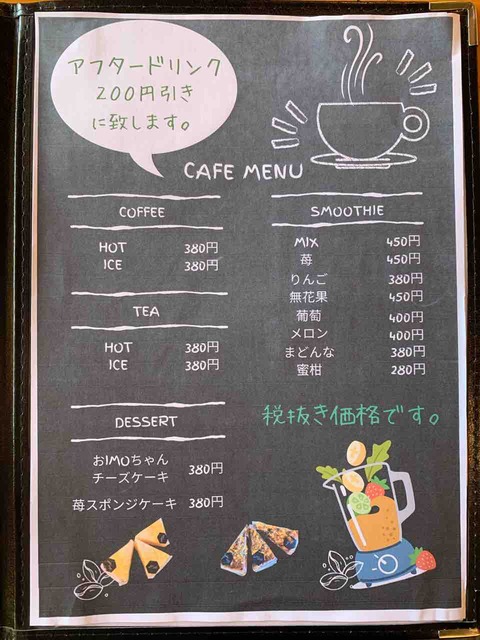 アフタードリンク
200円引き
に致します。
CAFE MENU
COFFEE
HOT 380円
ICE 380円
TEA
HOT 380円
ICE 380円
DESSERT
おIMOちゃん
チーズケーキ 380円
苺スポンジケーキ 380円
SMOOTHIE
MIX 450円
苺 450円
りんご 380円
無花果 450円
葡萄 400円
メロン 400円
まどんな 380円
蜜柑 280円
税抜き価格です。